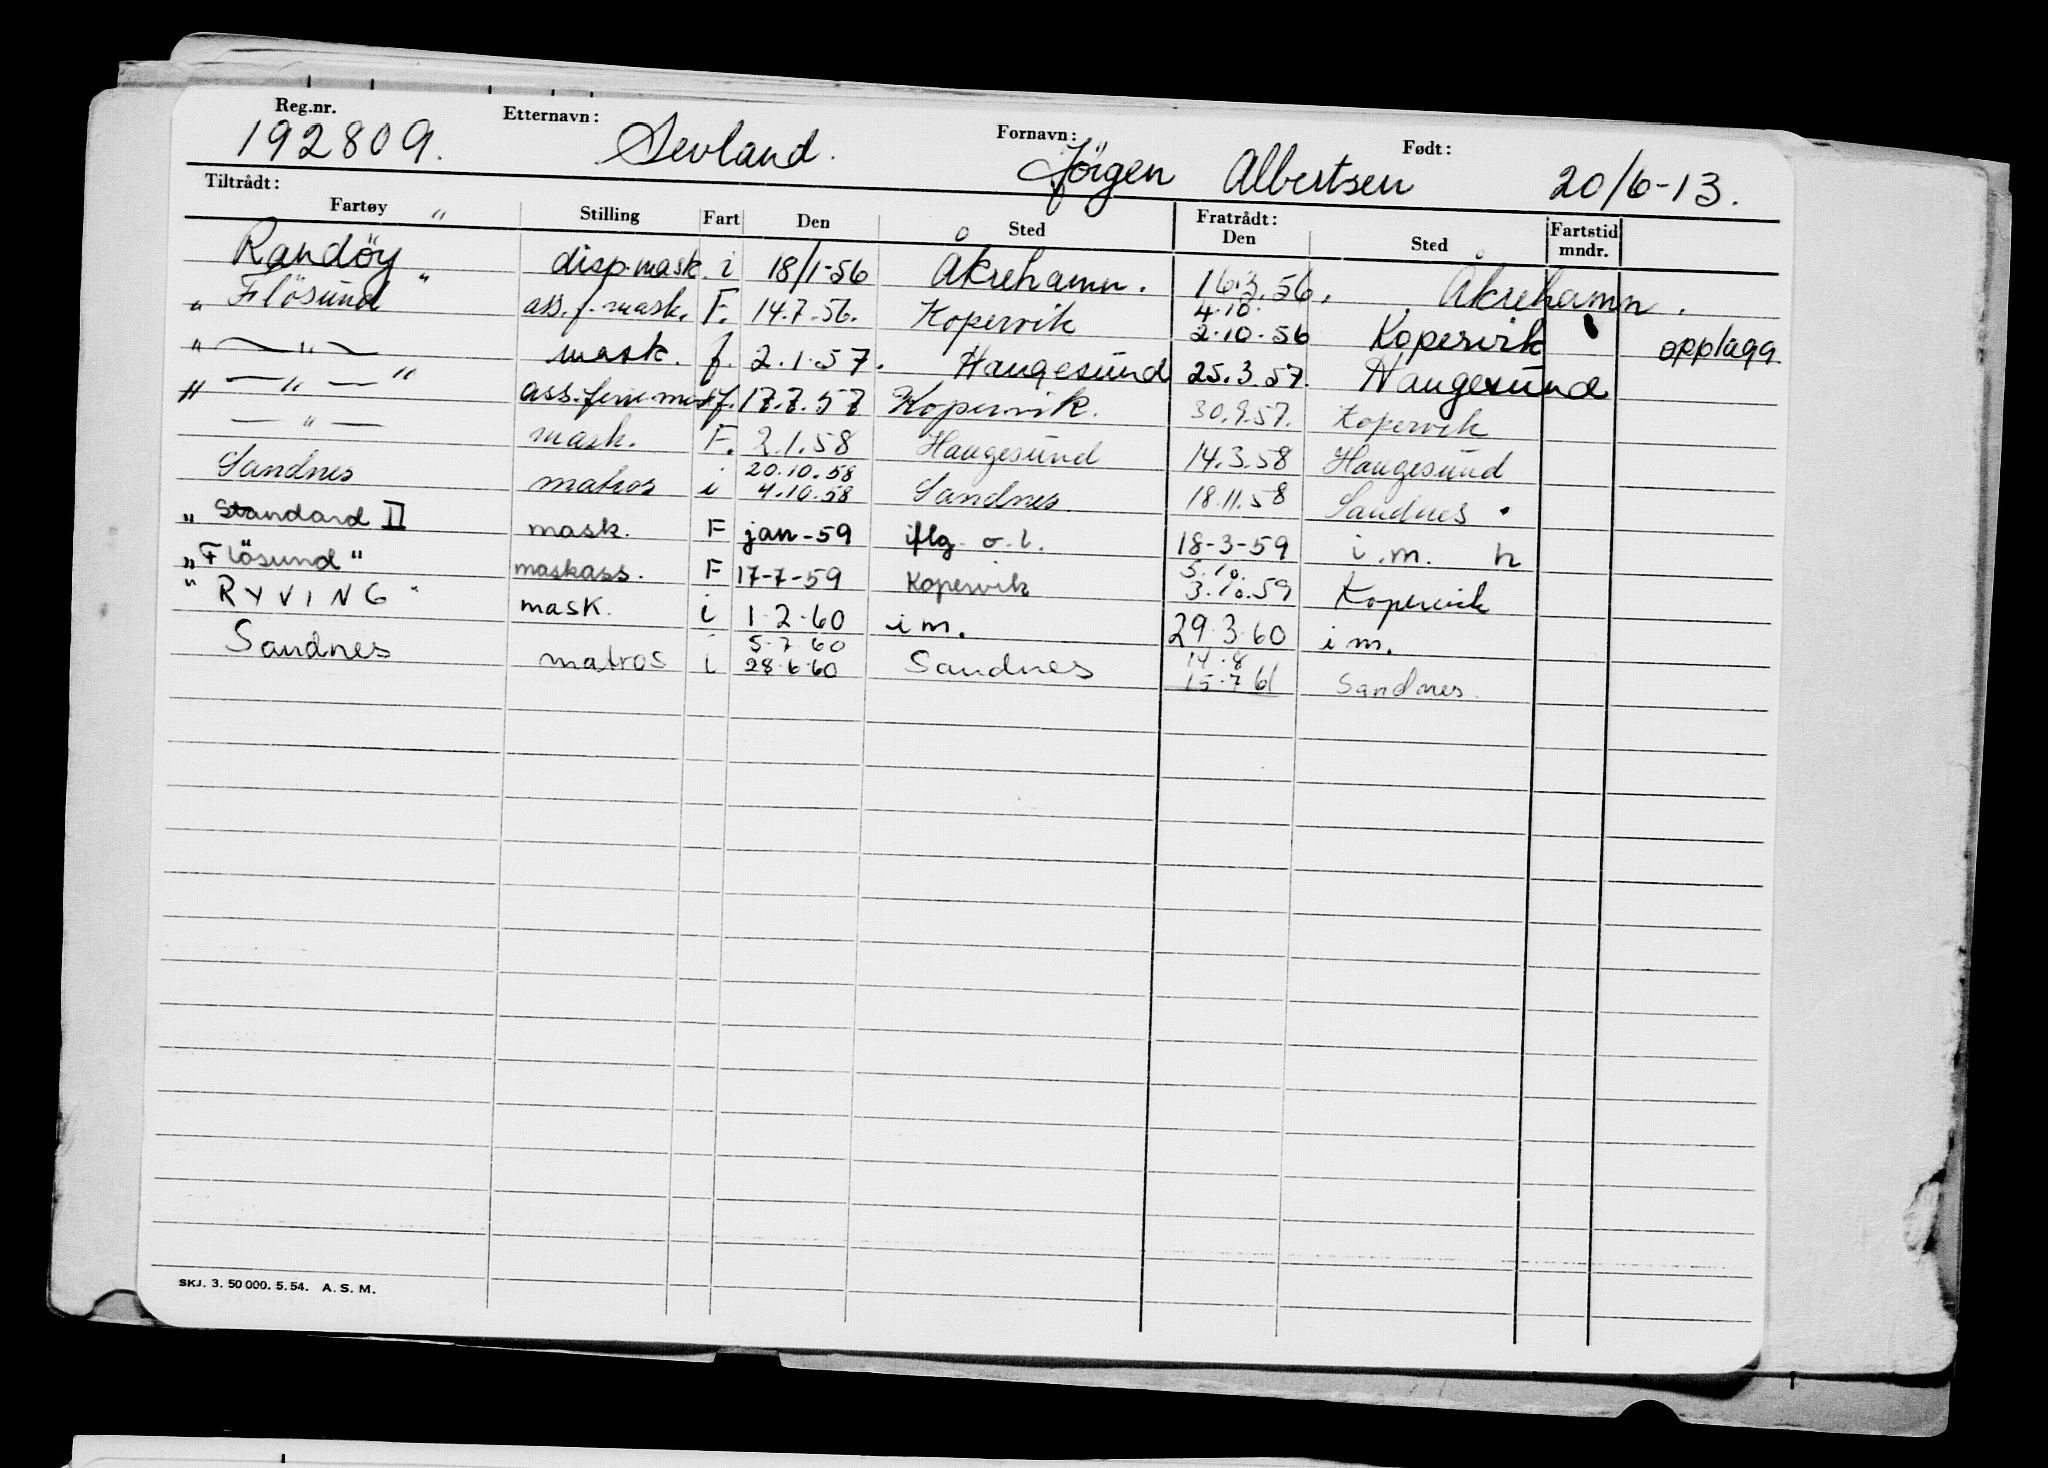 Reg.nr. Etternavn: Fornavn: Født:
192809. Sevland. Jörgen Albertsen 20/6-13.
Tiltrådt: Fratrådt:
Fartøy Stilling Fart Den Sted Den Sted Fartstid mndr.
Randöy " disp.mask. i 18/1-56 Åkrehamn. 16.3.56. Åkrehamn.
" Flösund " ass. f. mask. F. 14.7.56. Kopervik 4.10. 2.10.56 Kopervik opplagg.
" — " — mask. f. 2.1.57. Haugesund 25.3.57. Haugesund
" — " — " f. 17.7.57 Kopervik. 30.9.57. Kopervik
— " — mask. F. 2.1.58 Haugesund 14.3.58 Haugesund
Sandnes matros i 20.10.58 4.10.58 Sandnes 18.11.58 Sandnes.
" Standard II mask. F jan-59 iflg. o.l. 18-3-59 i.m. h
"Flösund" maskass. F 17-7-59 Kopervik 5.10. 3.10.59 Kopervik
" RYVING " mask. i 1.2.60 i m. 29.3.60 i m.
Sandnes matros i 5.7.60 28.6.60 Sandnes 14.8 15.7 61 Sandnes.
SKJ. 3. 50 000. 5. 54. A. S. M.